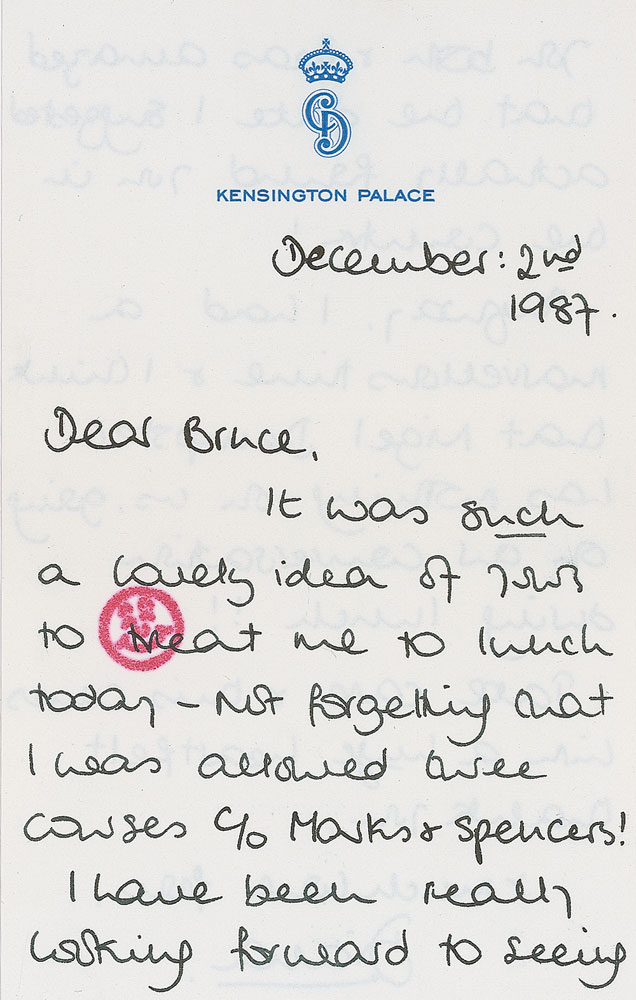 KENSINGTON PALACE
December: 2nd
1987.
Dear Bruce,
It was such
a lovely idea of yours
to treat me to lunch
today - not forgetting that
I was allowed three
courses c/o Marks & Spencers!
I have been really
looking forward to seeing